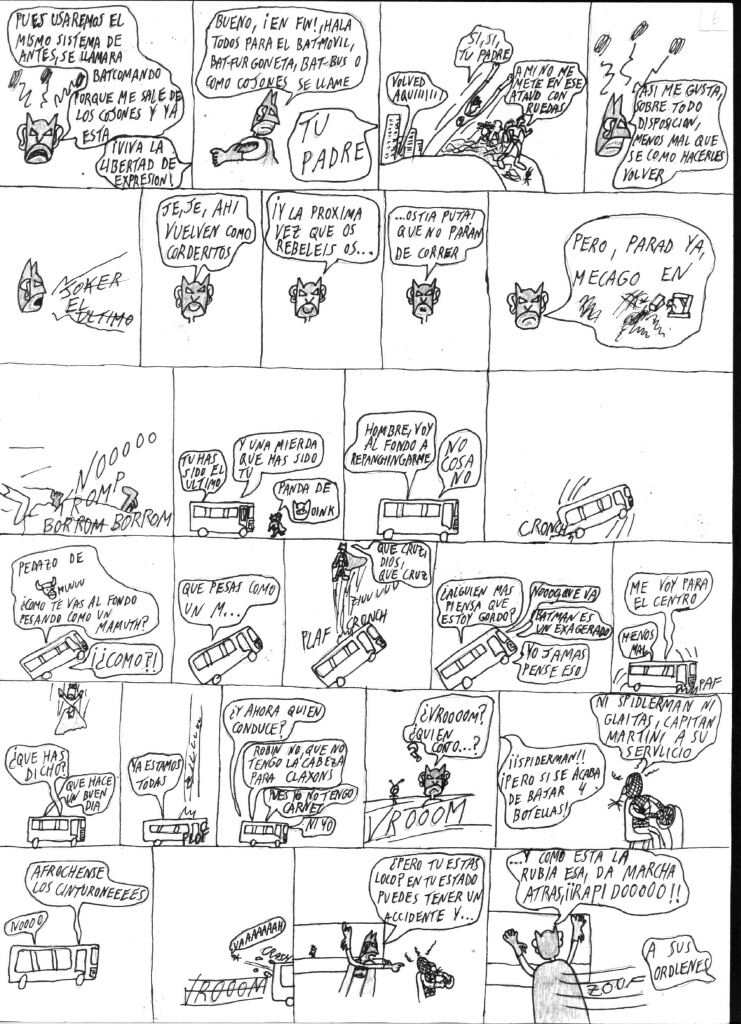 PUES USAREMOS EL
MISMO SISTEMA DE
ANTES, SE LLAMARA
BATCOMANDO
PORQUE ME SALE DE
LOS COJONES Y YA
ESTA
¡VIVA LA
LIBERTAD DE
EXPRESION!
BUENO, ¡EN FIN!, HALA
TODOS PARA EL BATMOVIL,
BAT-FURGONETA, BAT-BUS O
COMO COJONES SE LLAME
TU
PADRE
VOLVED
AQUIIIIII
SI, SI,
TU PADRE
A MI NO ME
METE EN ESE
ATAUD CON
RUEDAS
6
ASI ME GUSTA,
SOBRE TODO
DISPOSICION,
MENOS MAL QUE
SE COMO HACERLES
VOLVER
JOKER
EL
ULTIMO
JE, JE, AHI
VUELVEN COMO
CORDERITOS
¡Y LA PROXIMA
VEZ QUE OS
REBELEIS OS...
...OSTIA PUTA!
QUE NO PARAN
DE CORRER
PERO, PARAD YA,
MECAGO EN
NOOOOO
KROMP
BORROM BORROM
TU HAS
SIDO EL
ULTIMO
Y UNA MIERDA
QUE HAS SIDO
TU
PANDA DE
OINK
HOMBRE, VOY
AL FONDO A
REPANGHINGARME
NO
COSA
NO
CRONCH
PEDAZO DE
MUUUU
¿COMO TE VAS AL FONDO
PESANDO COMO UN
MAMUTH?
¡¿COMO?!
QUE PESAS COMO
UN M...
QUE CRUZ,
DIOS,
QUE CRUZ
ZIUUUUU
PLAF
CRONCH
¿ALGUIEN MAS
PIENSA QUE
ESTOY GORDO?
NOOOOQUE VA
BATMAN ES
UN EXAGERADO
YO JAMAS
PENSE ESO
ME VOY PARA
EL CENTRO
MENOS
MAL
PAF
¿QUE HAS
DICHO?
QUE HACE
UN BUEN
DIA
YA ESTAMOS
TODAS
PLOF
¿Y AHORA QUIEN
CONDUCE?
ROBIN NO, QUE NO
TENGO LA CABEZA
PARA CLAXONS
PUES YO NO TENGO
CARNET
NI YO
¿VROOOOM?
¿QUIEN
COÑO...?
VROOOM
¡¡SPIDERMAN!!
¡PERO SI SE ACABA
DE BAJAR 4
BOTELLAS!
NI SPIDLERMAN NI
GLAITAS, CAPITAN
MARTINI A SU
SERVLICIO
AFROCHENSE
LOS CINTURONEEEES
NOOOO
UAAAAAAAH
CRASH
VROOOM
¿PERO TU ESTAS
LOCO? EN TU ESTADO
PUEDES TENER UN
ACCIDENTE Y...
...Y COMO ESTA LA
RUBIA ESA, DA MARCHA
ATRAS, ¡¡RAPIDOOOOO!!
A SUS
ORDLENES
ZOOF